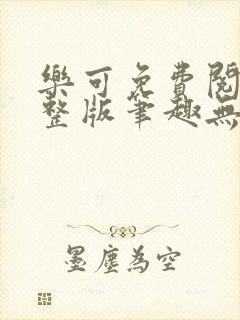 樂可免費閱
整版筆趣無
墨塵為空